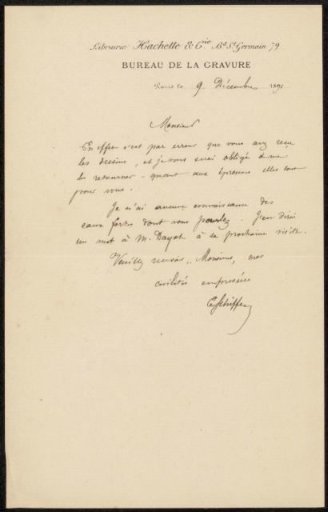 Librairie Hachette & Cie, Bd St Germain 79
BUREAU DE LA GRAVURE
Paris le 9 Décembre 189
Monsieur
En effet c'est par erreur que vous avez reçu
les dessins, et je vous serai obligé de me
les retourner - quant aux épreuves elles sont
pour vous.
Je n'ai aucune connaissance des
eaux fortes dont vous parlez. J'en dirai
un mot à M. Dayot à sa prochaine visite.
Veuillez recevoir, Monsieur, mes
civilités empressées